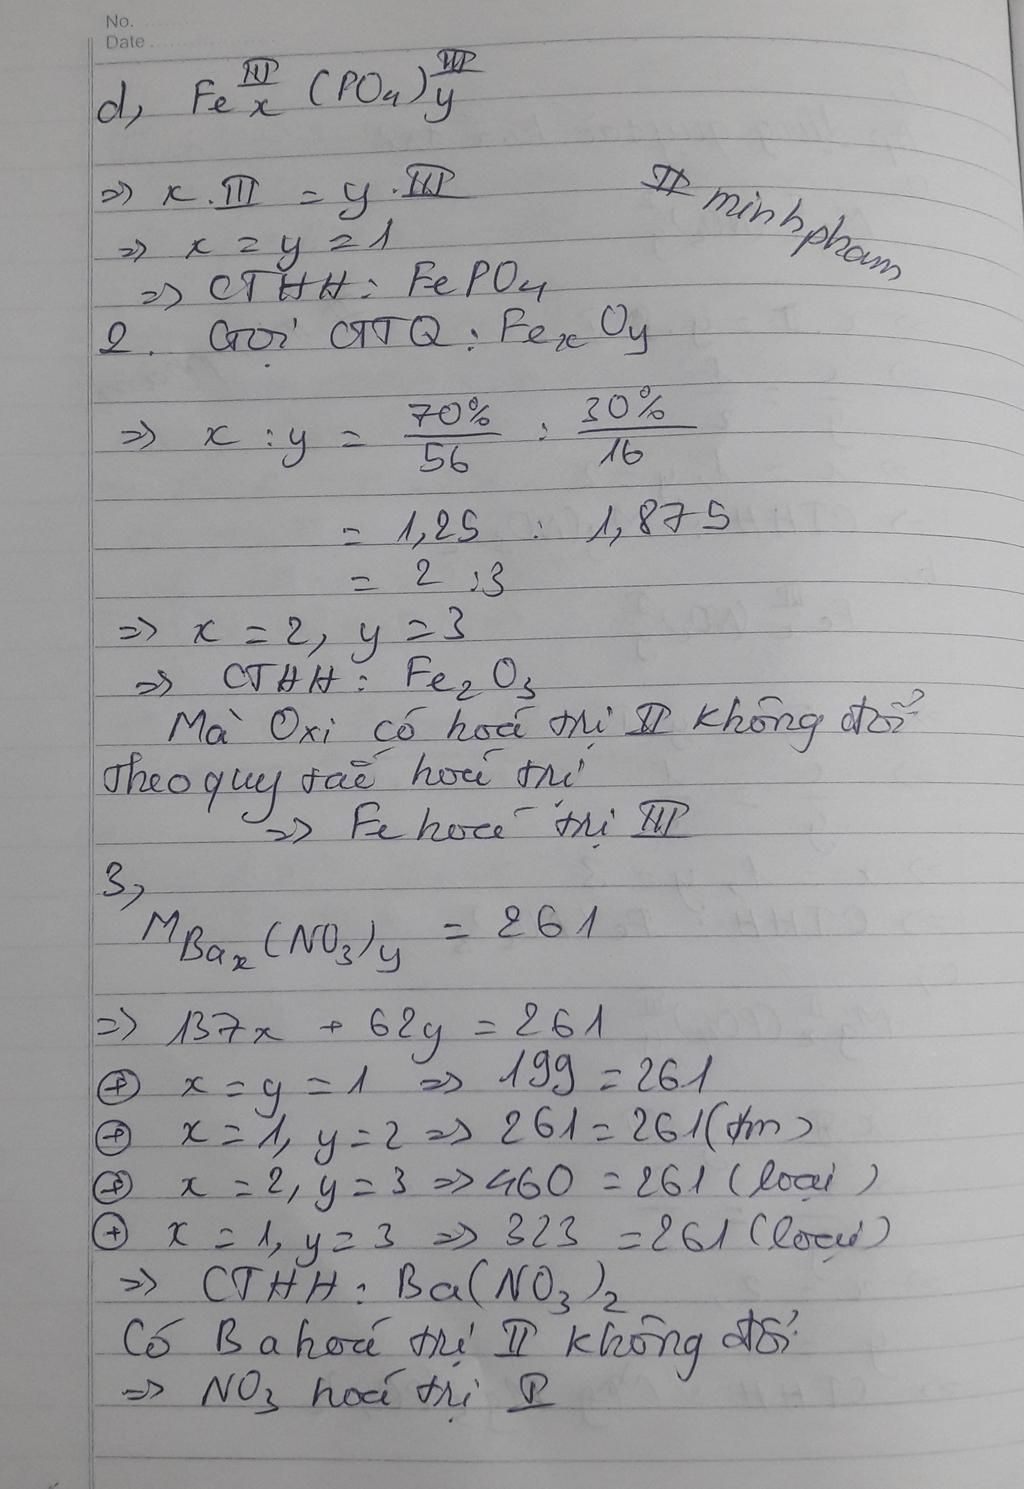 No.
Date
d, Fe x III (PO4) y III
=> x . III = y . III
II minhpham
=> x = y = 1
=> CTHH : FePO4
2. Gọi CTTQ : FexOy
=> x : y = 70%/56 : 30%/16
= 1,25 : 1,875
= 2 : 3
=> x = 2, y = 3
=> CTHH : Fe2O3
Mà Oxi có hoá trị II không đổi
Theo quy tắc hoá trị
=> Fe hoá trị III
3,
MBax(NO3)y = 261
=> 137x + 62y = 261
⊕ x = y = 1 => 199 = 261
⊕ x = 1, y = 2 => 261 = 261 (tm)
⊕ x = 2, y = 3 => 460 = 261 (loại)
⊕ x = 1, y = 3 => 323 = 261 (loại)
=> CTHH : Ba(NO3)2
Có Ba hoá trị II không đổi
=> NO3 hoá trị I